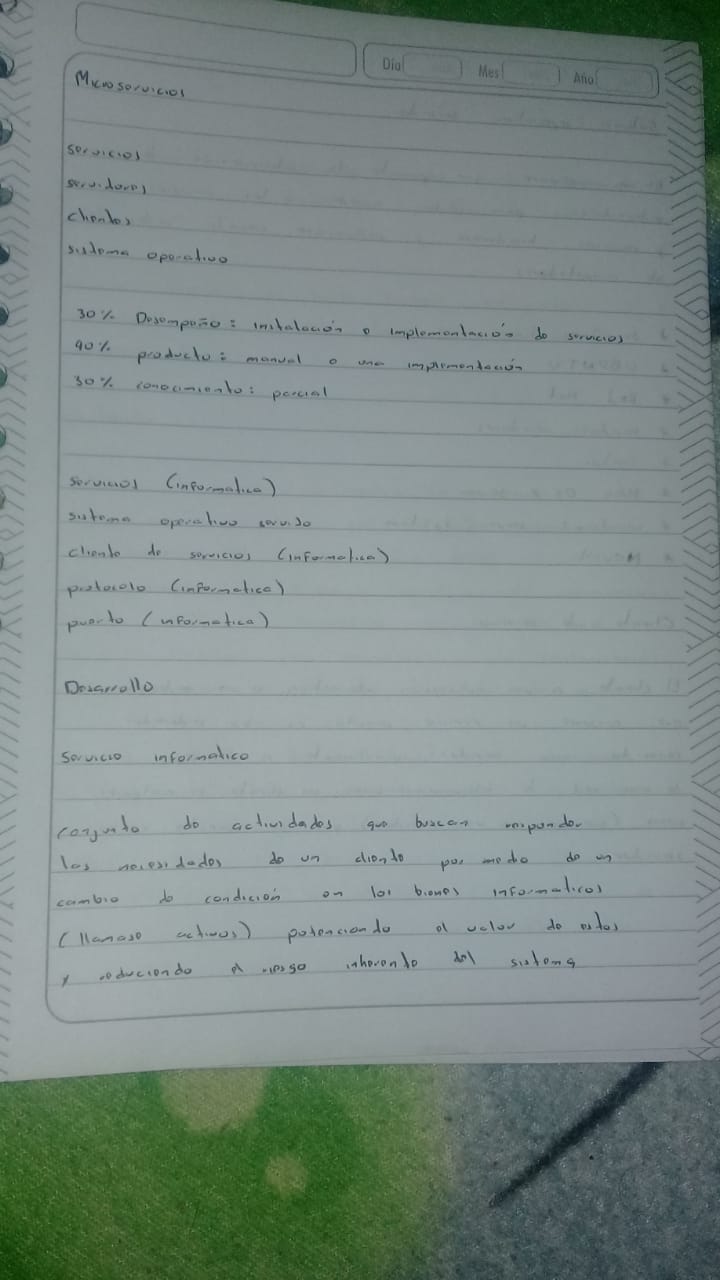 Día Mes Año
Microservicios
servicios
servidores
clientes
sistema operativo
30% Desempeño: instalación o implementación de servicios
40% producto: manual o una implementación
30% conocimiento: parcial
servicios (informatica)
sistema operativo servido
cliente de servicios (informatica)
protocolo (informatica)
puerto (informatica)
Desarrollo
Servicio informatico
conjunto de actividades que buscan responder
las necesidades de un cliente por medo de un
cambio de condición en los bienes informaticos
(llamase activos) potenciando el valor de estos
y reduciendo el riesgo inherente del sistema